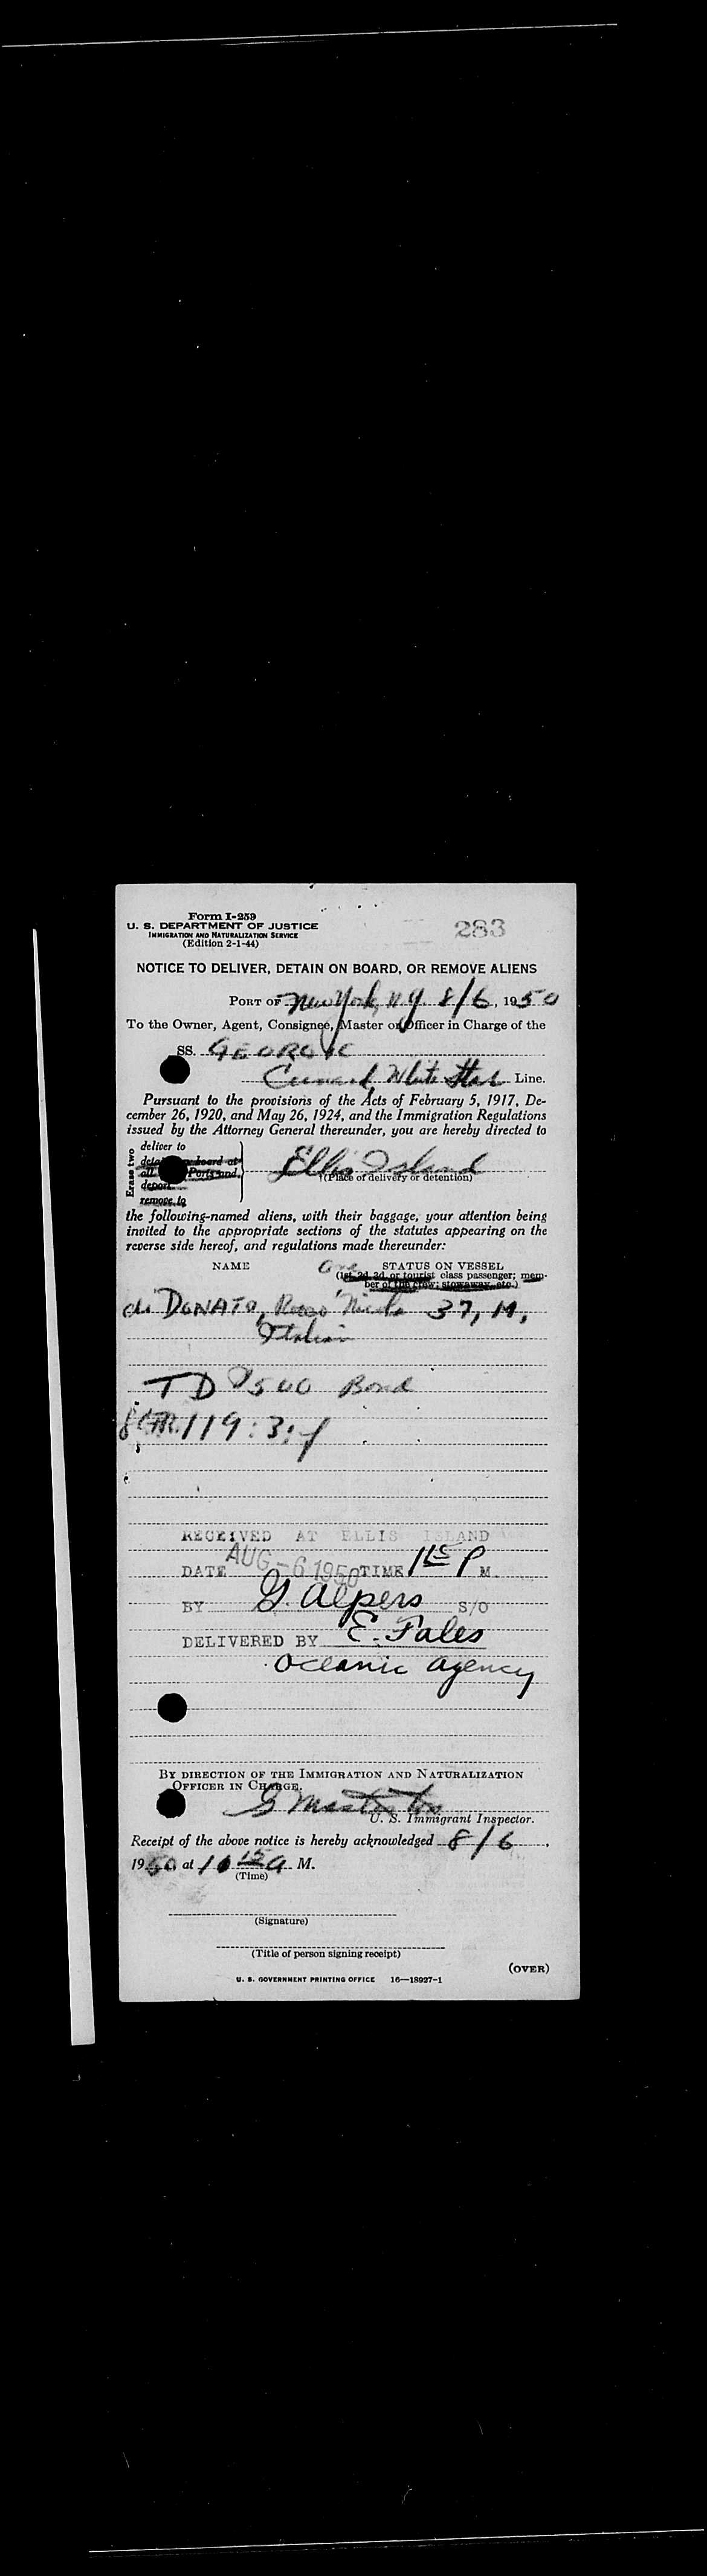 Form I-259
U. S. DEPARTMENT OF JUSTICE
IMMIGRATION AND NATURALIZATION SERVICE
(Edition 2-1-44)
283
NOTICE TO DELIVER, DETAIN ON BOARD, OR REMOVE ALIENS
PORT OF New York, N.Y. 8/6, 1950
To the Owner, Agent, Consignee, Master or Officer in Charge of the
SS. GEORGIC
Cunard White Star Line.
Pursuant to the provisions of the Acts of February 5, 1917, De-
cember 26, 1920, and May 26, 1924, and the Immigration Regulations
issued by the Attorney General thereunder, you are hereby directed to
Erase two
deliver to
board at
all Ports and
deport
remove to
Ellis Island
(Place of delivery or detention)
the following-named aliens, with their baggage, your attention being
invited to the appropriate sections of the statutes appearing on the
reverse side hereof, and regulations made thereunder:
NAME
One STATUS ON VESSEL
(1st, 2d, 3d, or tourist class passenger; mem-
ber of the crew; stowaway, etc.)
di DONATO, Nicola 37, M,
Italian
TD $500 Bond
8 CFR 119:3:f
RECEIVED AT ELLIS ISLAND
DATE AUG -6 1950 TIME 1 15 P M.
BY G. Alpers S/O
DELIVERED BY E. Fales
Oceanic Agency
BY DIRECTION OF THE IMMIGRATION AND NATURALIZATION
OFFICER IN CHARGE.
U. S. Immigrant Inspector.
Receipt of the above notice is hereby acknowledged 8/6,
1950 at 10 15 a M.
(Time)
(Signature)
(Title of person signing receipt)
(OVER)
U. S. GOVERNMENT PRINTING OFFICE 16—18927-1